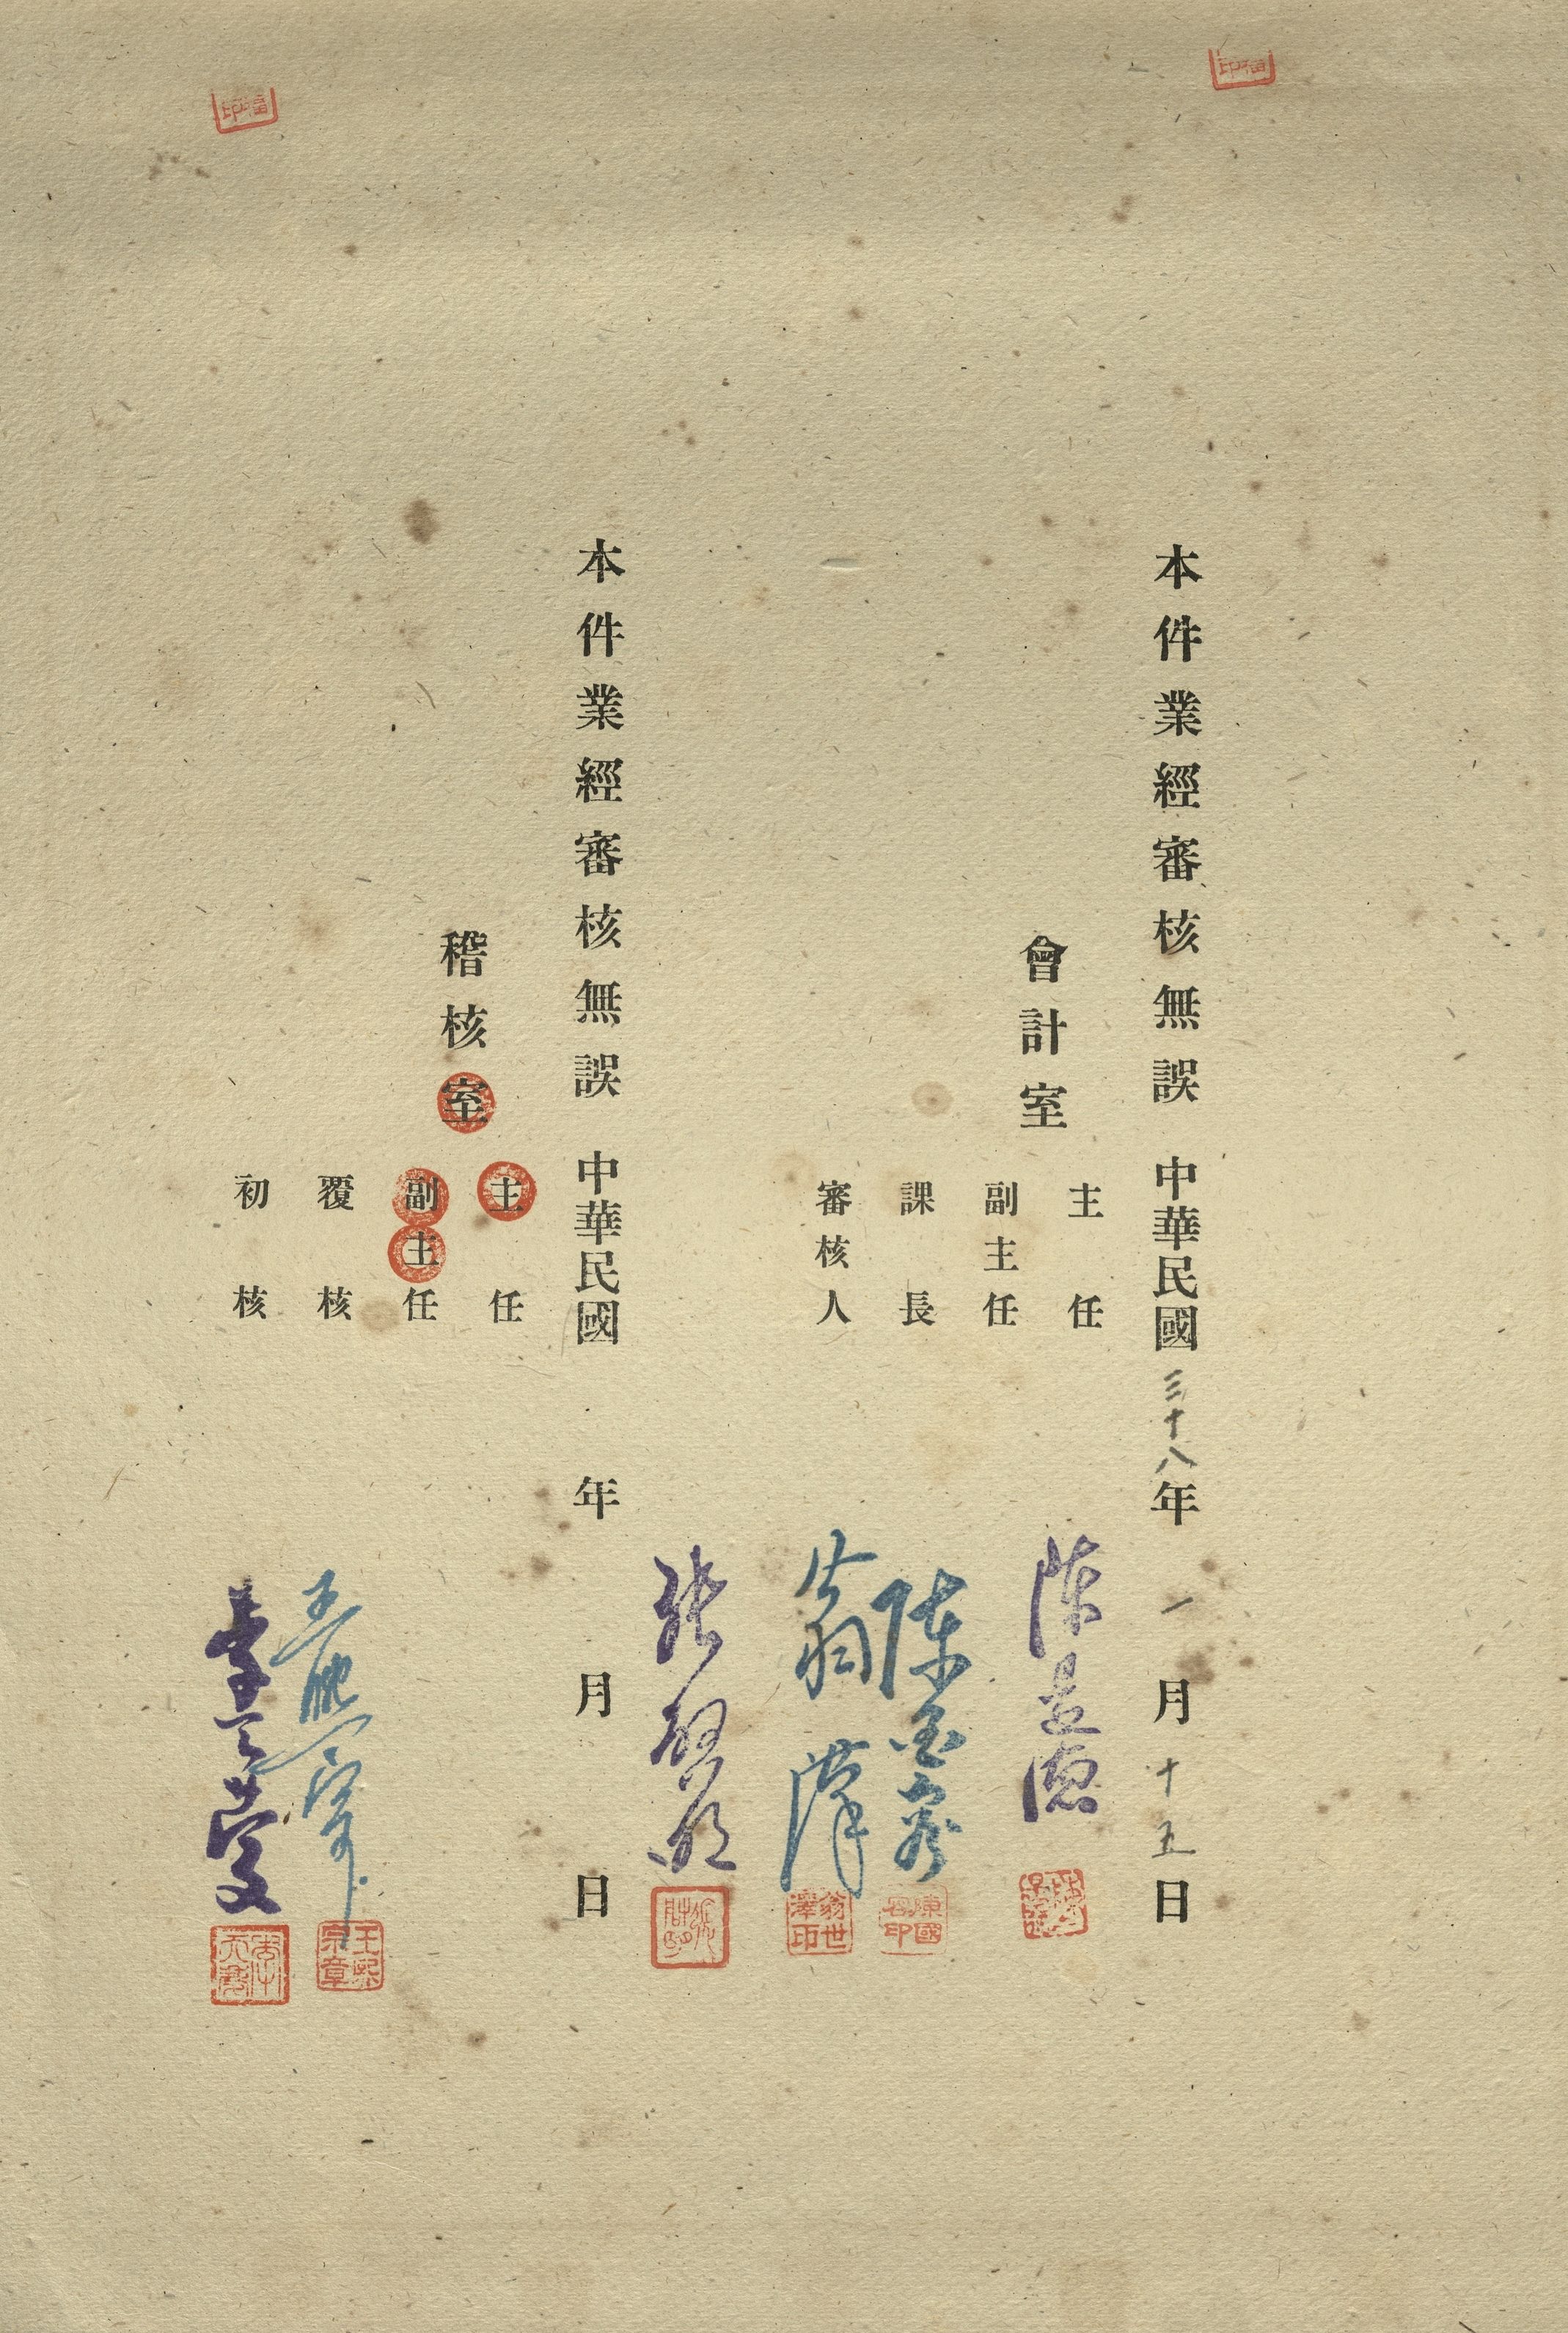 本件業經審核無誤 中華民國三十八年一月十五日
會計室
主任
副主任
課長
審核人
陳
陳國
翁
翁世澤印
張
本件業經審核無誤 中華民國 年 月 日
稽核室
主任
副主任
覆核
初核
王熙宗
王熙宗章
李